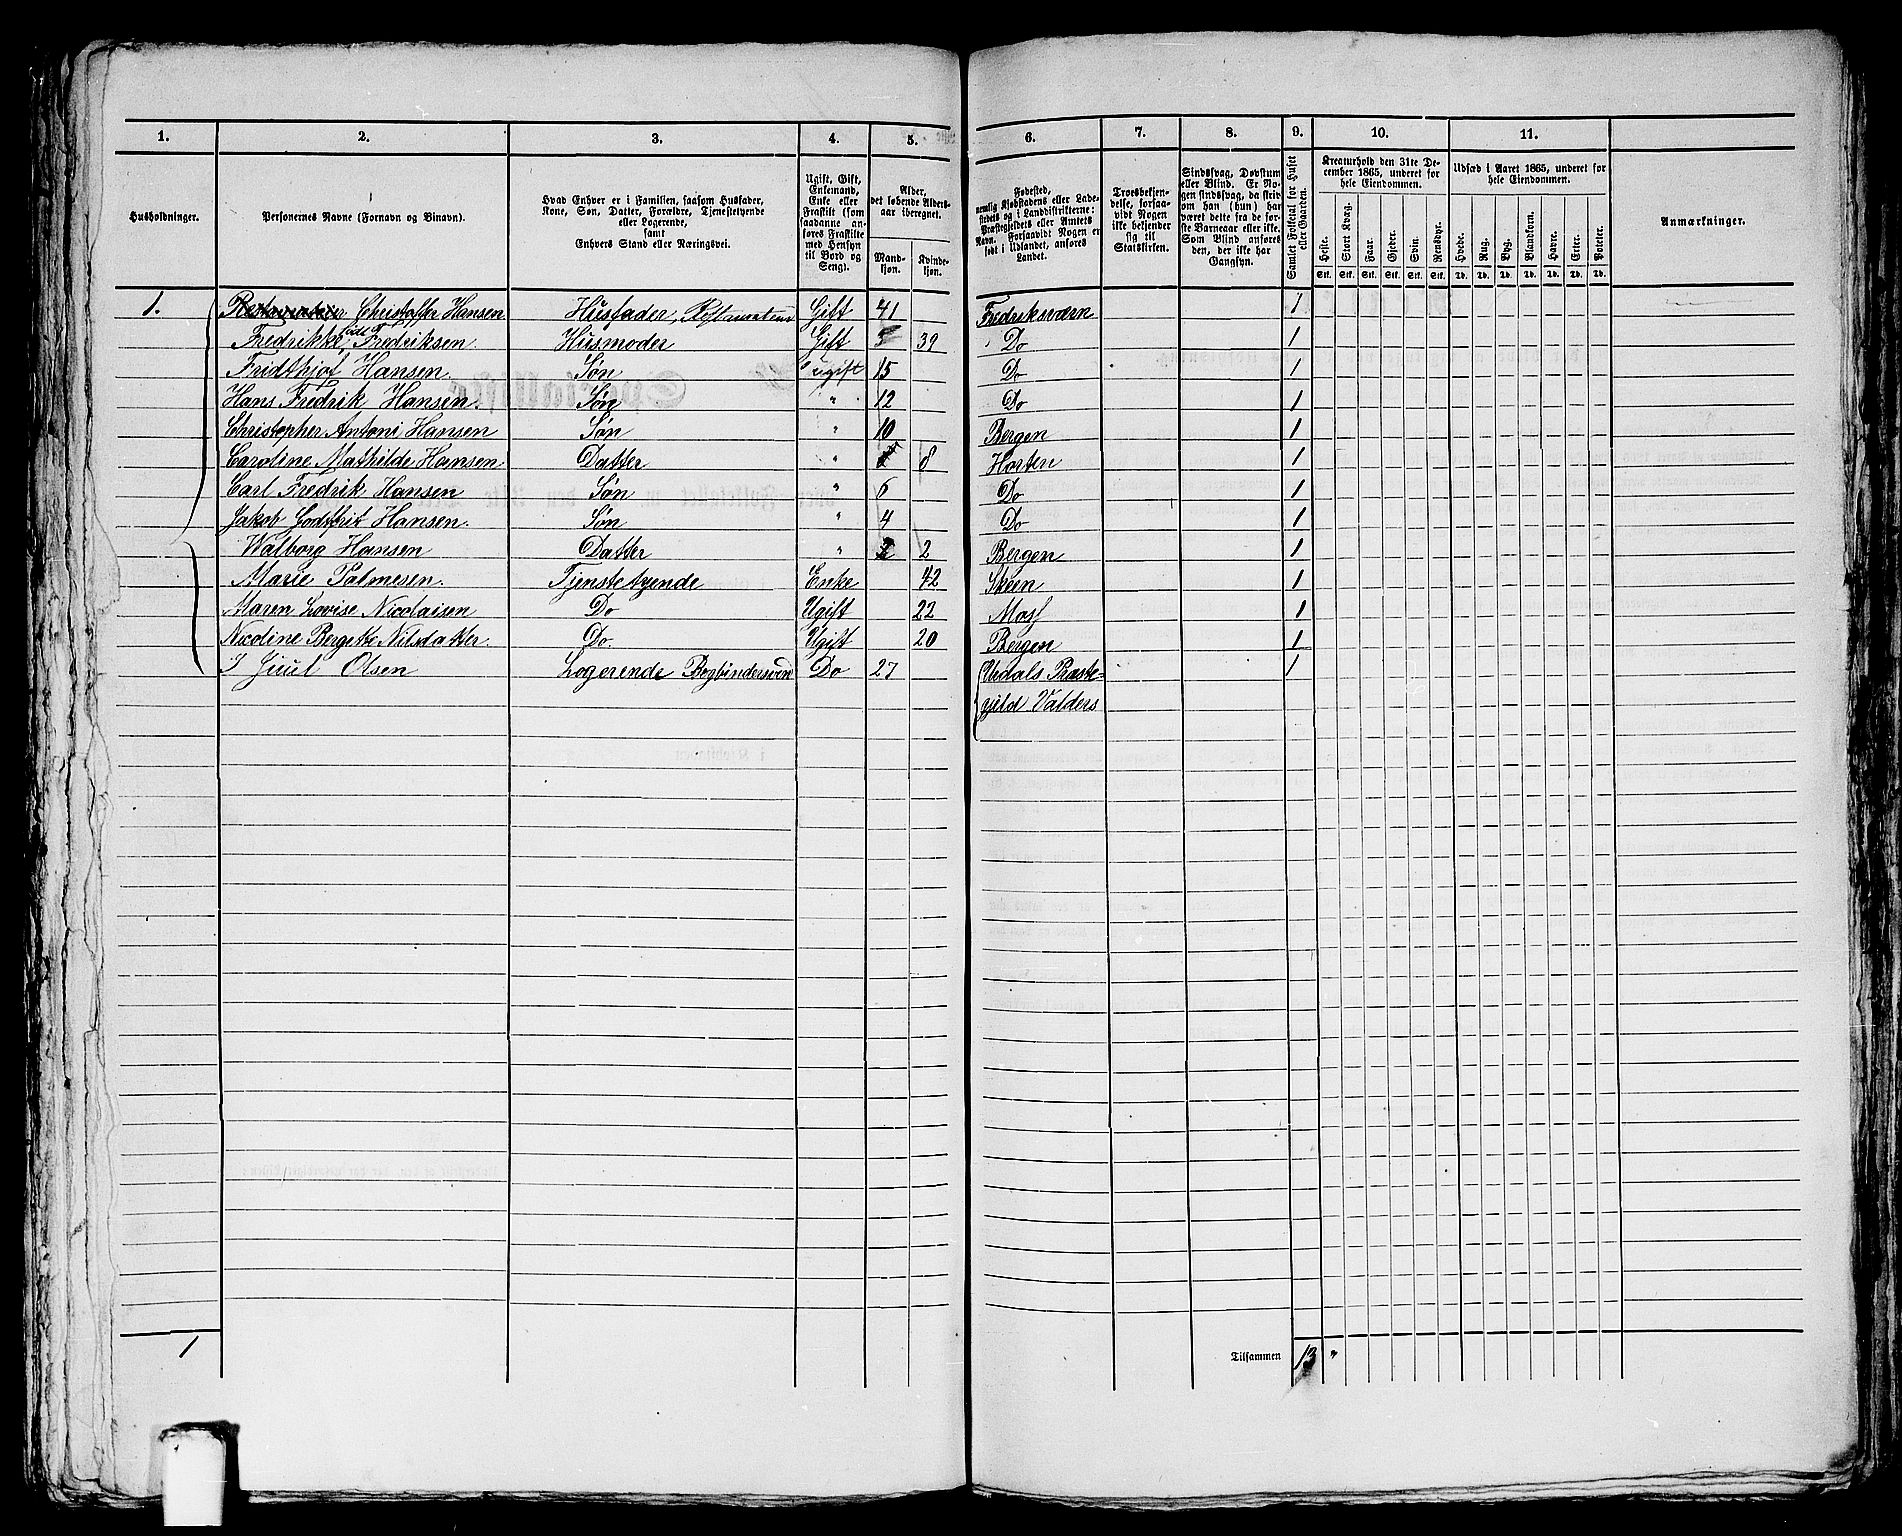 1. 2. 3. 4. 5. 6. 7. 8. 9. 10. 11.
Husholdninger.
Personernes Navne (Fornavn og Binavn).
Hvad Enhver er i Familien, saasom Husfader,
Kone, Søn, Datter, Forældre, Tjenestetyende
eller Logerende,
samt
Enhvers Stand eller Næringsvei.
Ugift, Gift,
Enkemand,
Enke eller
Fraskilt (som
saadanne an-
føres Fraskilte
med Hensyn
til Bord og
Seng).
Alder,
det løbende Alders-
aar iberegnet.
Mand-
kjøn.
Kvinde-
kjøn.
Fødested,
nemlig Kjøbstadens eller Lade-
stedets og i Landdistrikterne:
Præstegjeldets eller Amtets
Navn. Forsaavidt Nogen er
født i Udlandet, anføres
Landet.
Troesbekjen-
delse, forsaa-
vidt Nogen
ikke bekjender
sig til
Statskirken.
Sindssvag, Døvstum
eller Blind. Er No-
gen sindssvag, da skriv
om han (hun) har
været dette fra de før-
ste Barneaar eller ikke.
Som Blind anføres
den, der ikke har
Gangsyn.
Samlet Folketal for Huset
eller Gaarden.
Kreaturhold den 31te De-
cember 1865, underet for
hele Eiendommen.
Heste. Stort Kvæg. Faar. Gjeder. Svin. Rensdyr.
Stk. Stk. Stk. Stk. Stk. Stk.
Udsæd i Aaret 1865, underet for
hele Eiendommen.
Hvede. Rug. Byg. Blandkorn. Havre. Erter. Poteter.
Td. Td. Td. Td. Td. Td. Td.
Anmærkninger.
1. Christoffer Hansen Husfader, Gift 41 Fredriksværn 1
Fredrikke født Fredriksen Husmoder Gift 39 Do 1
Fridthjof Hansen. Søn ugift 15 Do 1
Hans Fredrik Hansen. Søn " 12 Do 1
Christopher Antoni Hansen Søn " 10 Bergen 1
Caroline Mathilde Hansen Datter " 8 Horten 1
Carl Fredrik Hansen Søn " 6 Do 1
Jakob Godtfrit Hansen. Søn " 4 Do 1
Walborg Hansen Datter " 2 Bergen 1
Marie Palmesen. Tjenstetyende Enke 42 Skeen 1
Maren Lovise Nicolaisen Do Ugift 22 Moss 1
Nicoline Bergitte Nilsdatter. Do. Ugift 20 Bergen 1
J Juul Olsen Logerende Bogbindersvend Do 27 Urdals Præste- 1
gjild Valders
1 Tilsammen 13 "